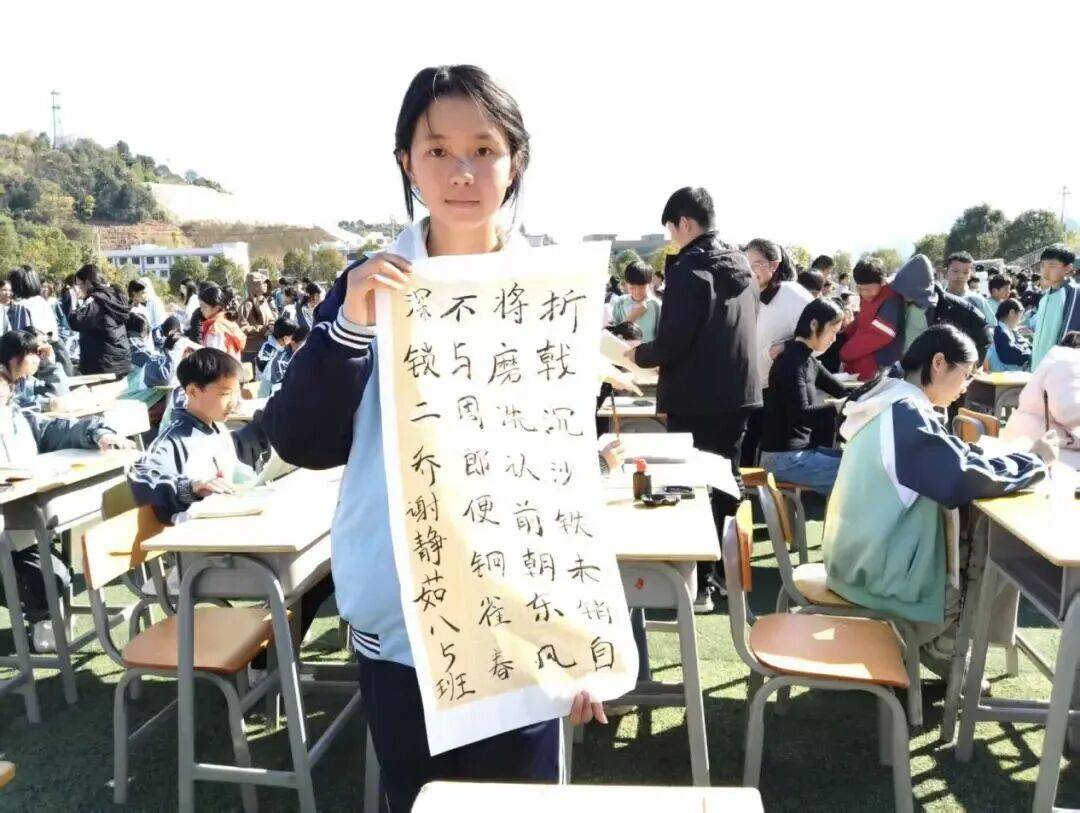 折戟沉沙铁未销自
将磨洗认前朝东风
不与周郎便铜雀春
深锁二乔谢静茹八5班